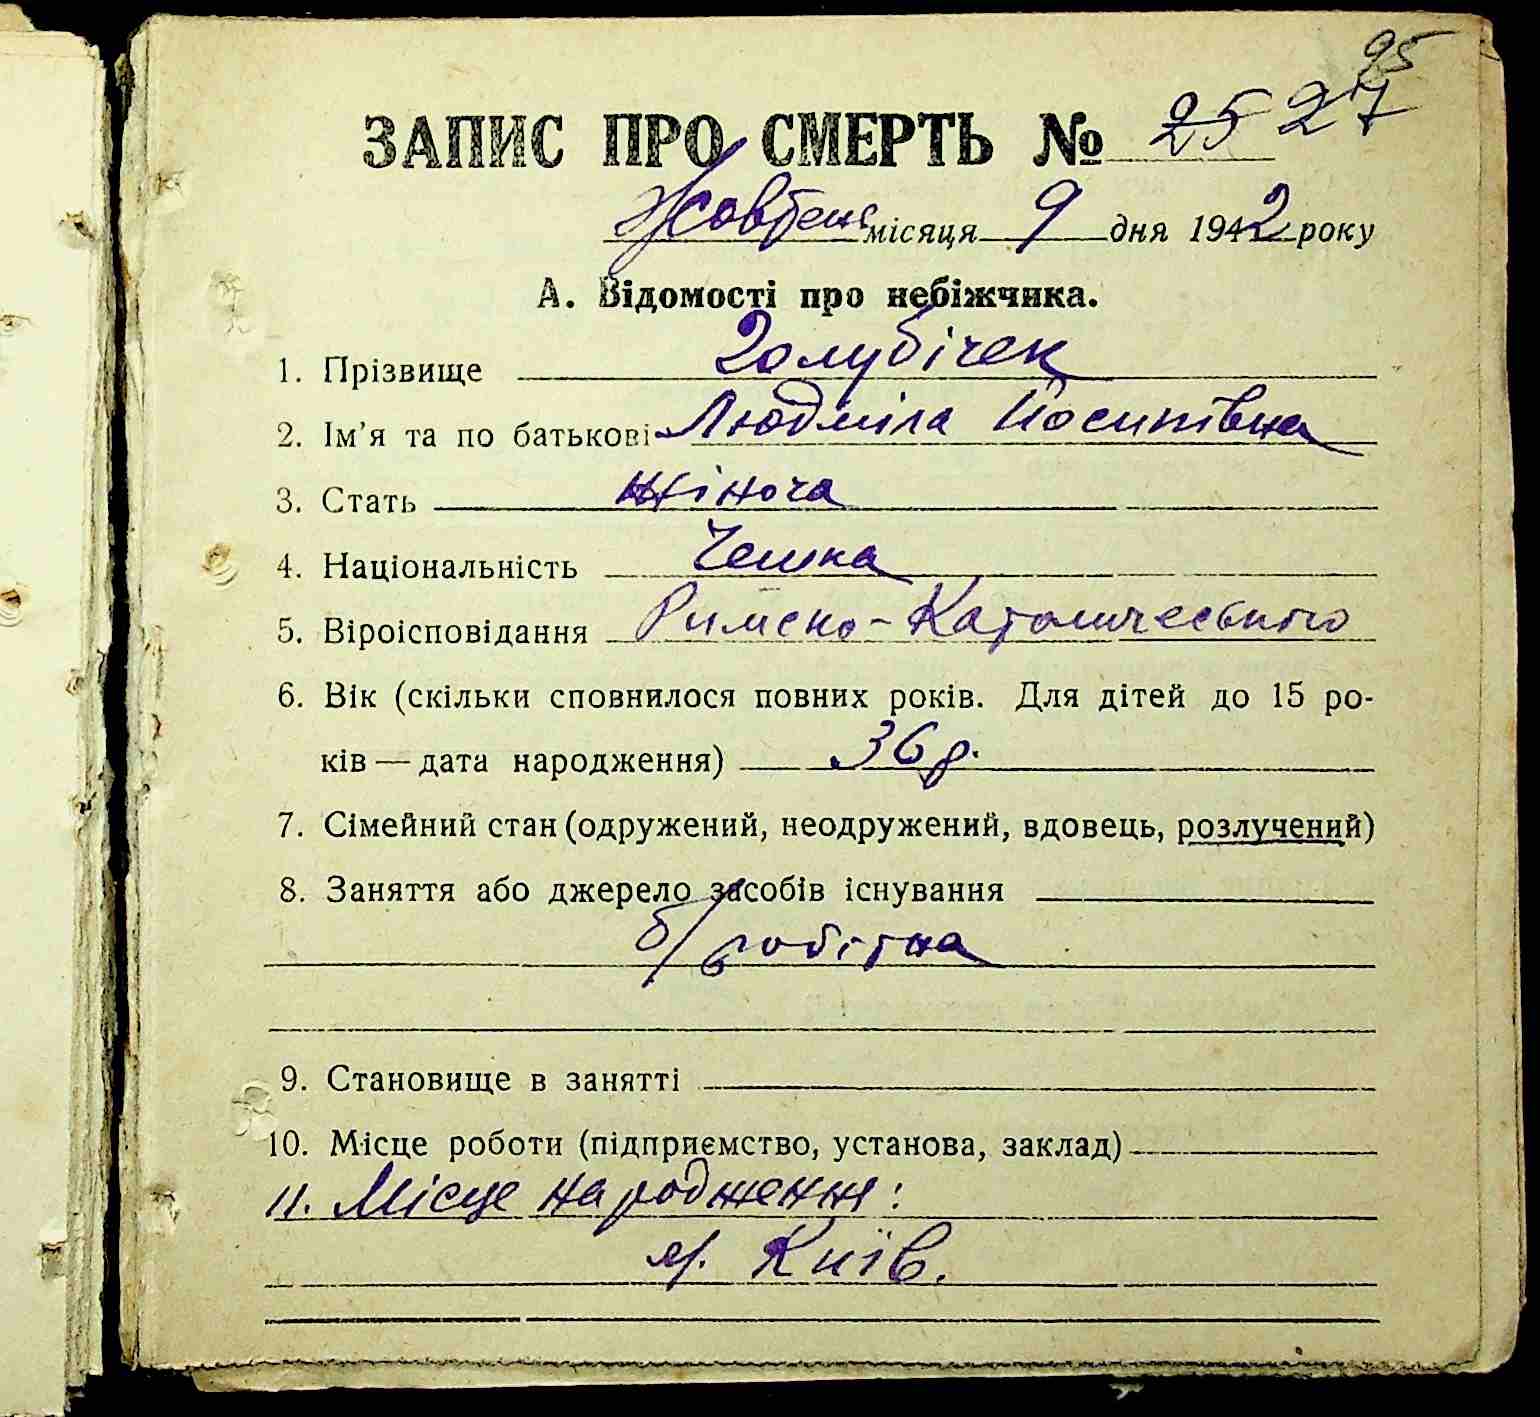 95
ЗАПИС ПРО СМЕРТЬ № 25 27
Жовтень місяця 9 дня 1942 року
А. Відомості про небіжчика.
1. Прізвище Голубічек
2. Ім'я та по батькові Людміла Йосипівна
3. Стать жіноча
4. Національність Чешка
5. Віроісповідання Римско-Католического
6. Вік (скільки сповнилося повних років. Для дітей до 15 ро-
ків — дата народження) 36 р.
7. Сімейний стан (одружений, неодружений, вдовець, розлучений)
8. Заняття або джерело засобів існування
б/робітна
9. Становище в занятті
10. Місце роботи (підприємство, установа, заклад)
11. Місце народження:
м. Київ.